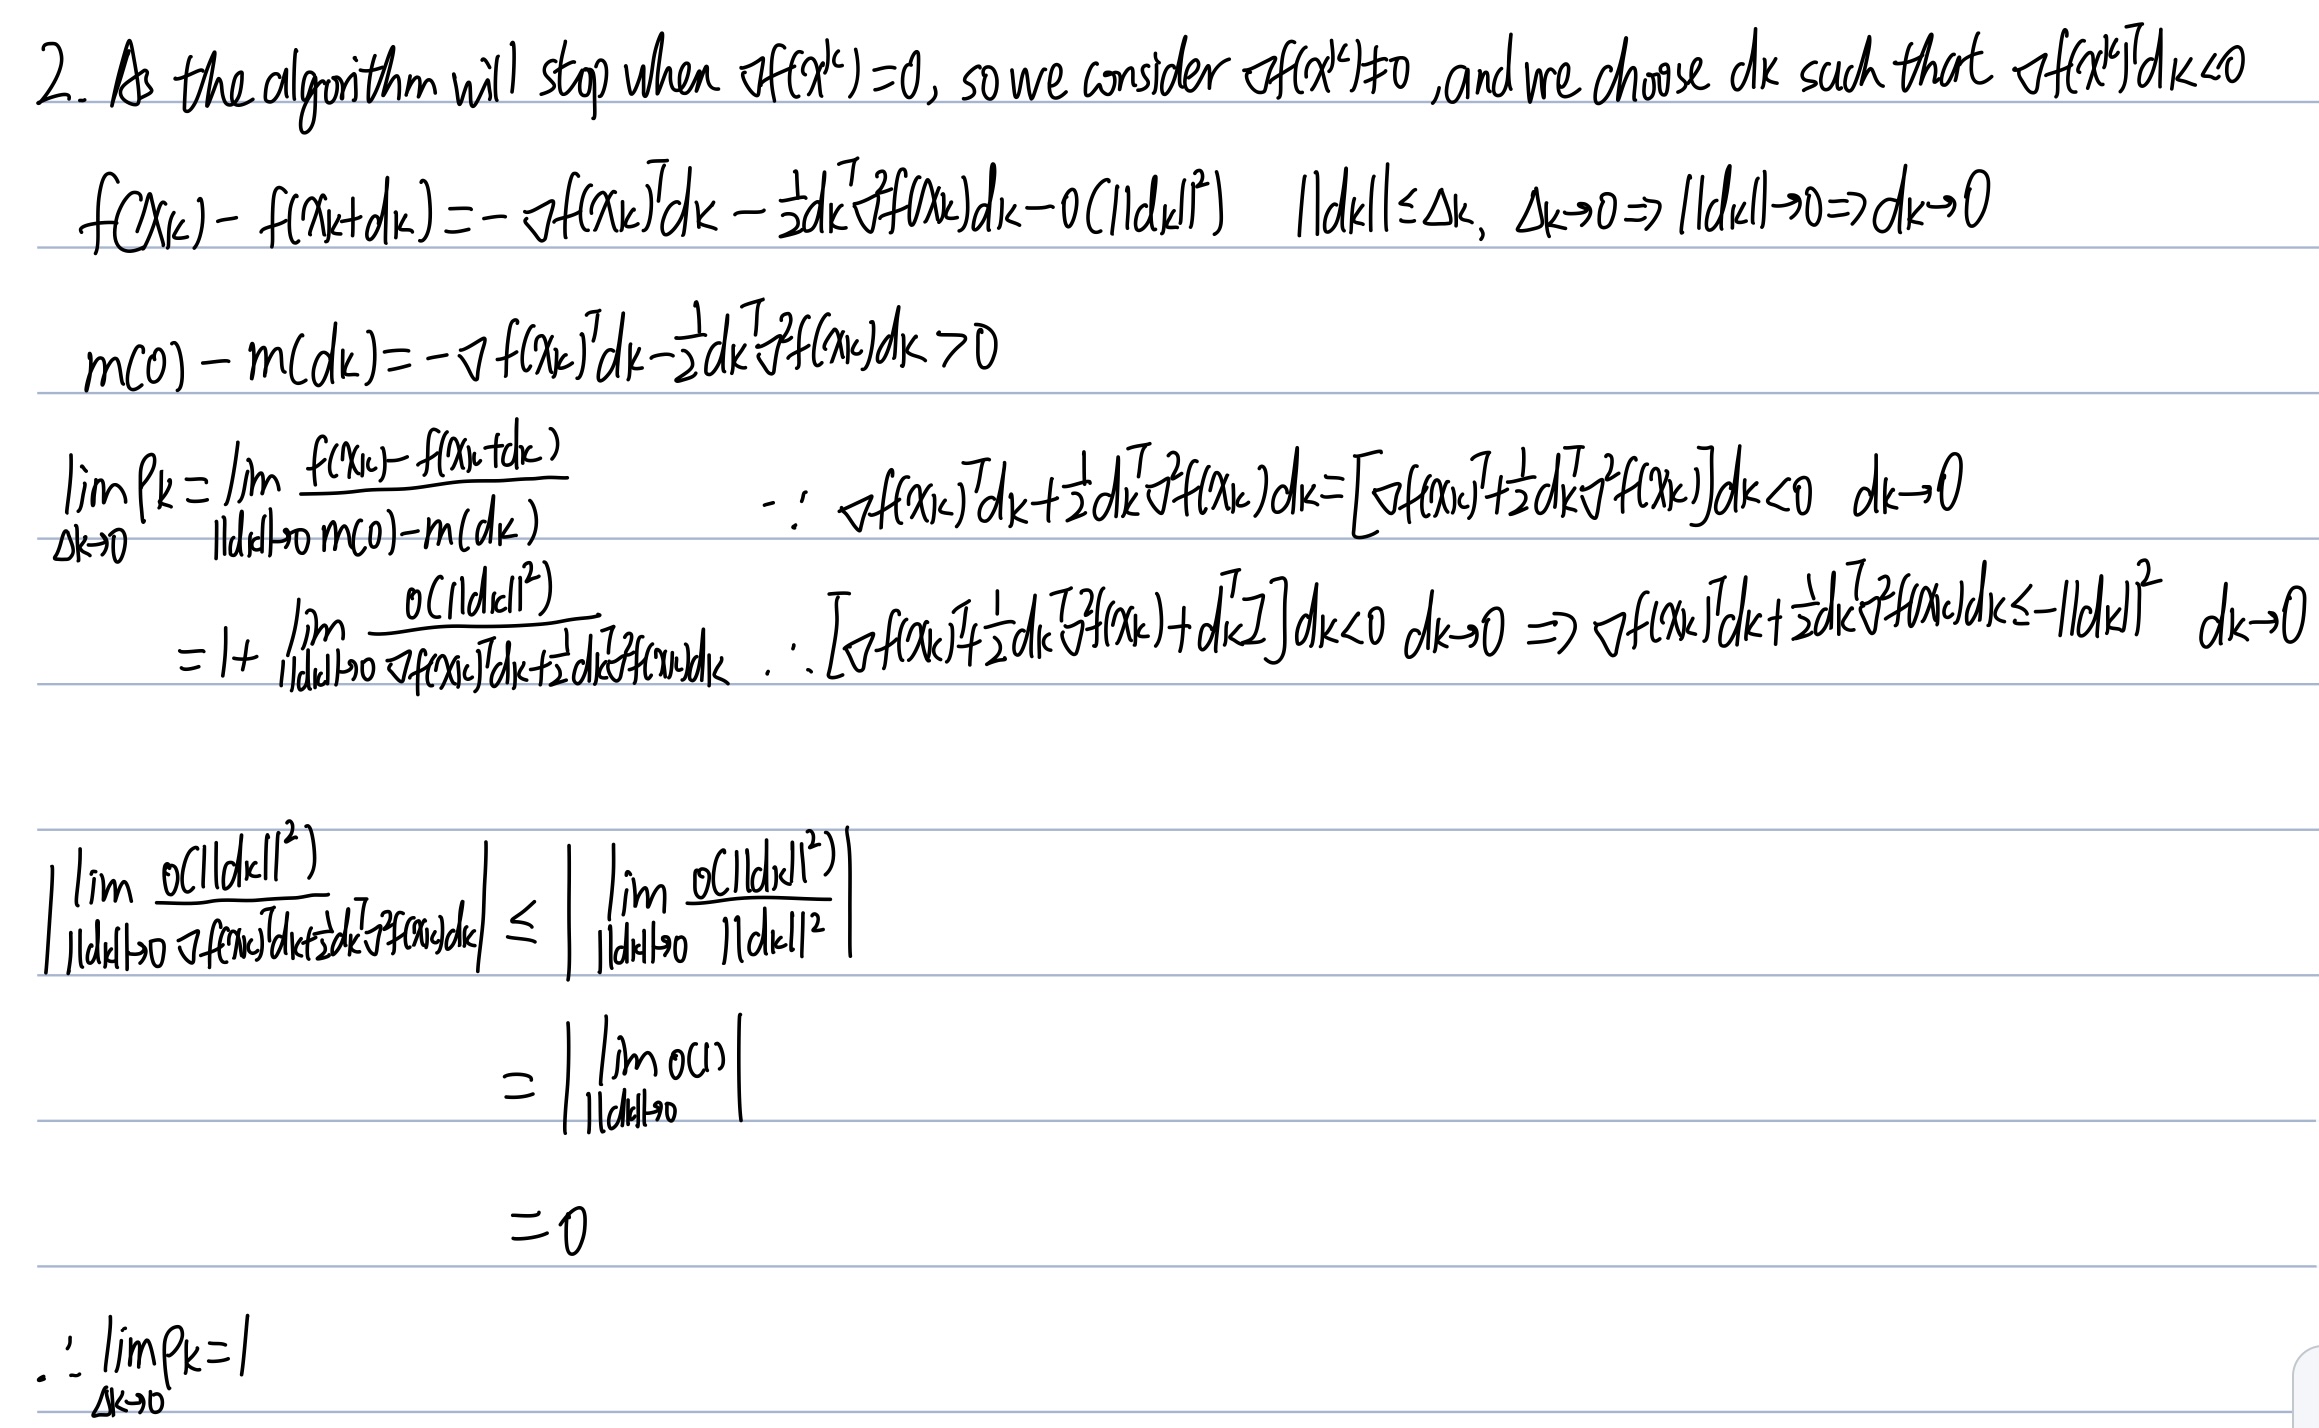 2. As the algorithm will stop when ∇f(x^k)=0, so we consider ∇f(x^k)≠0, and we choose dk such that ∇f(x^k)^T dk<0
f(xk)-f(xk+dk)=-∇f(xk)^T dk-1/2 dk^T ∇²f(xk)dk-o(||dk||²) ||dk||≤Δk, Δk→0⇒||dk||→0⇒dk→0
m(0)-m(dk)=-∇f(xk)^T dk-1/2 dk^T ∇²f(xk)dk>0
lim_{Δk→0} ρk=lim_{||dk||→0} (f(xk)-f(xk+dk))/(m(0)-m(dk)) ∵ ∇f(xk)^T dk+1/2 dk^T ∇²f(xk)dk=[∇f(xk)^T+1/2 dk^T ∇²f(xk)]dk<0 dk→0
=1+lim_{||dk||→0} o(||dk||²)/(∇f(xk)^T dk+1/2 dk^T ∇²f(xk)dk) ∴ [∇f(xk)^T+1/2 dk^T ∇²f(xk)+dk^T]dk<0 dk→0 ⇒ ∇f(xk)^T dk+1/2 dk^T ∇²f(xk)dk≤-||dk||² dk→0
|lim_{||dk||→0} o(||dk||²)/(∇f(xk)^T dk+1/2 dk^T ∇²f(xk)dk)| ≤ |lim_{||dk||→0} o(||dk||²)/||dk||²|
=|lim_{||dk||→0} o(1)|
=0
∴ lim_{Δk→0} ρk=1